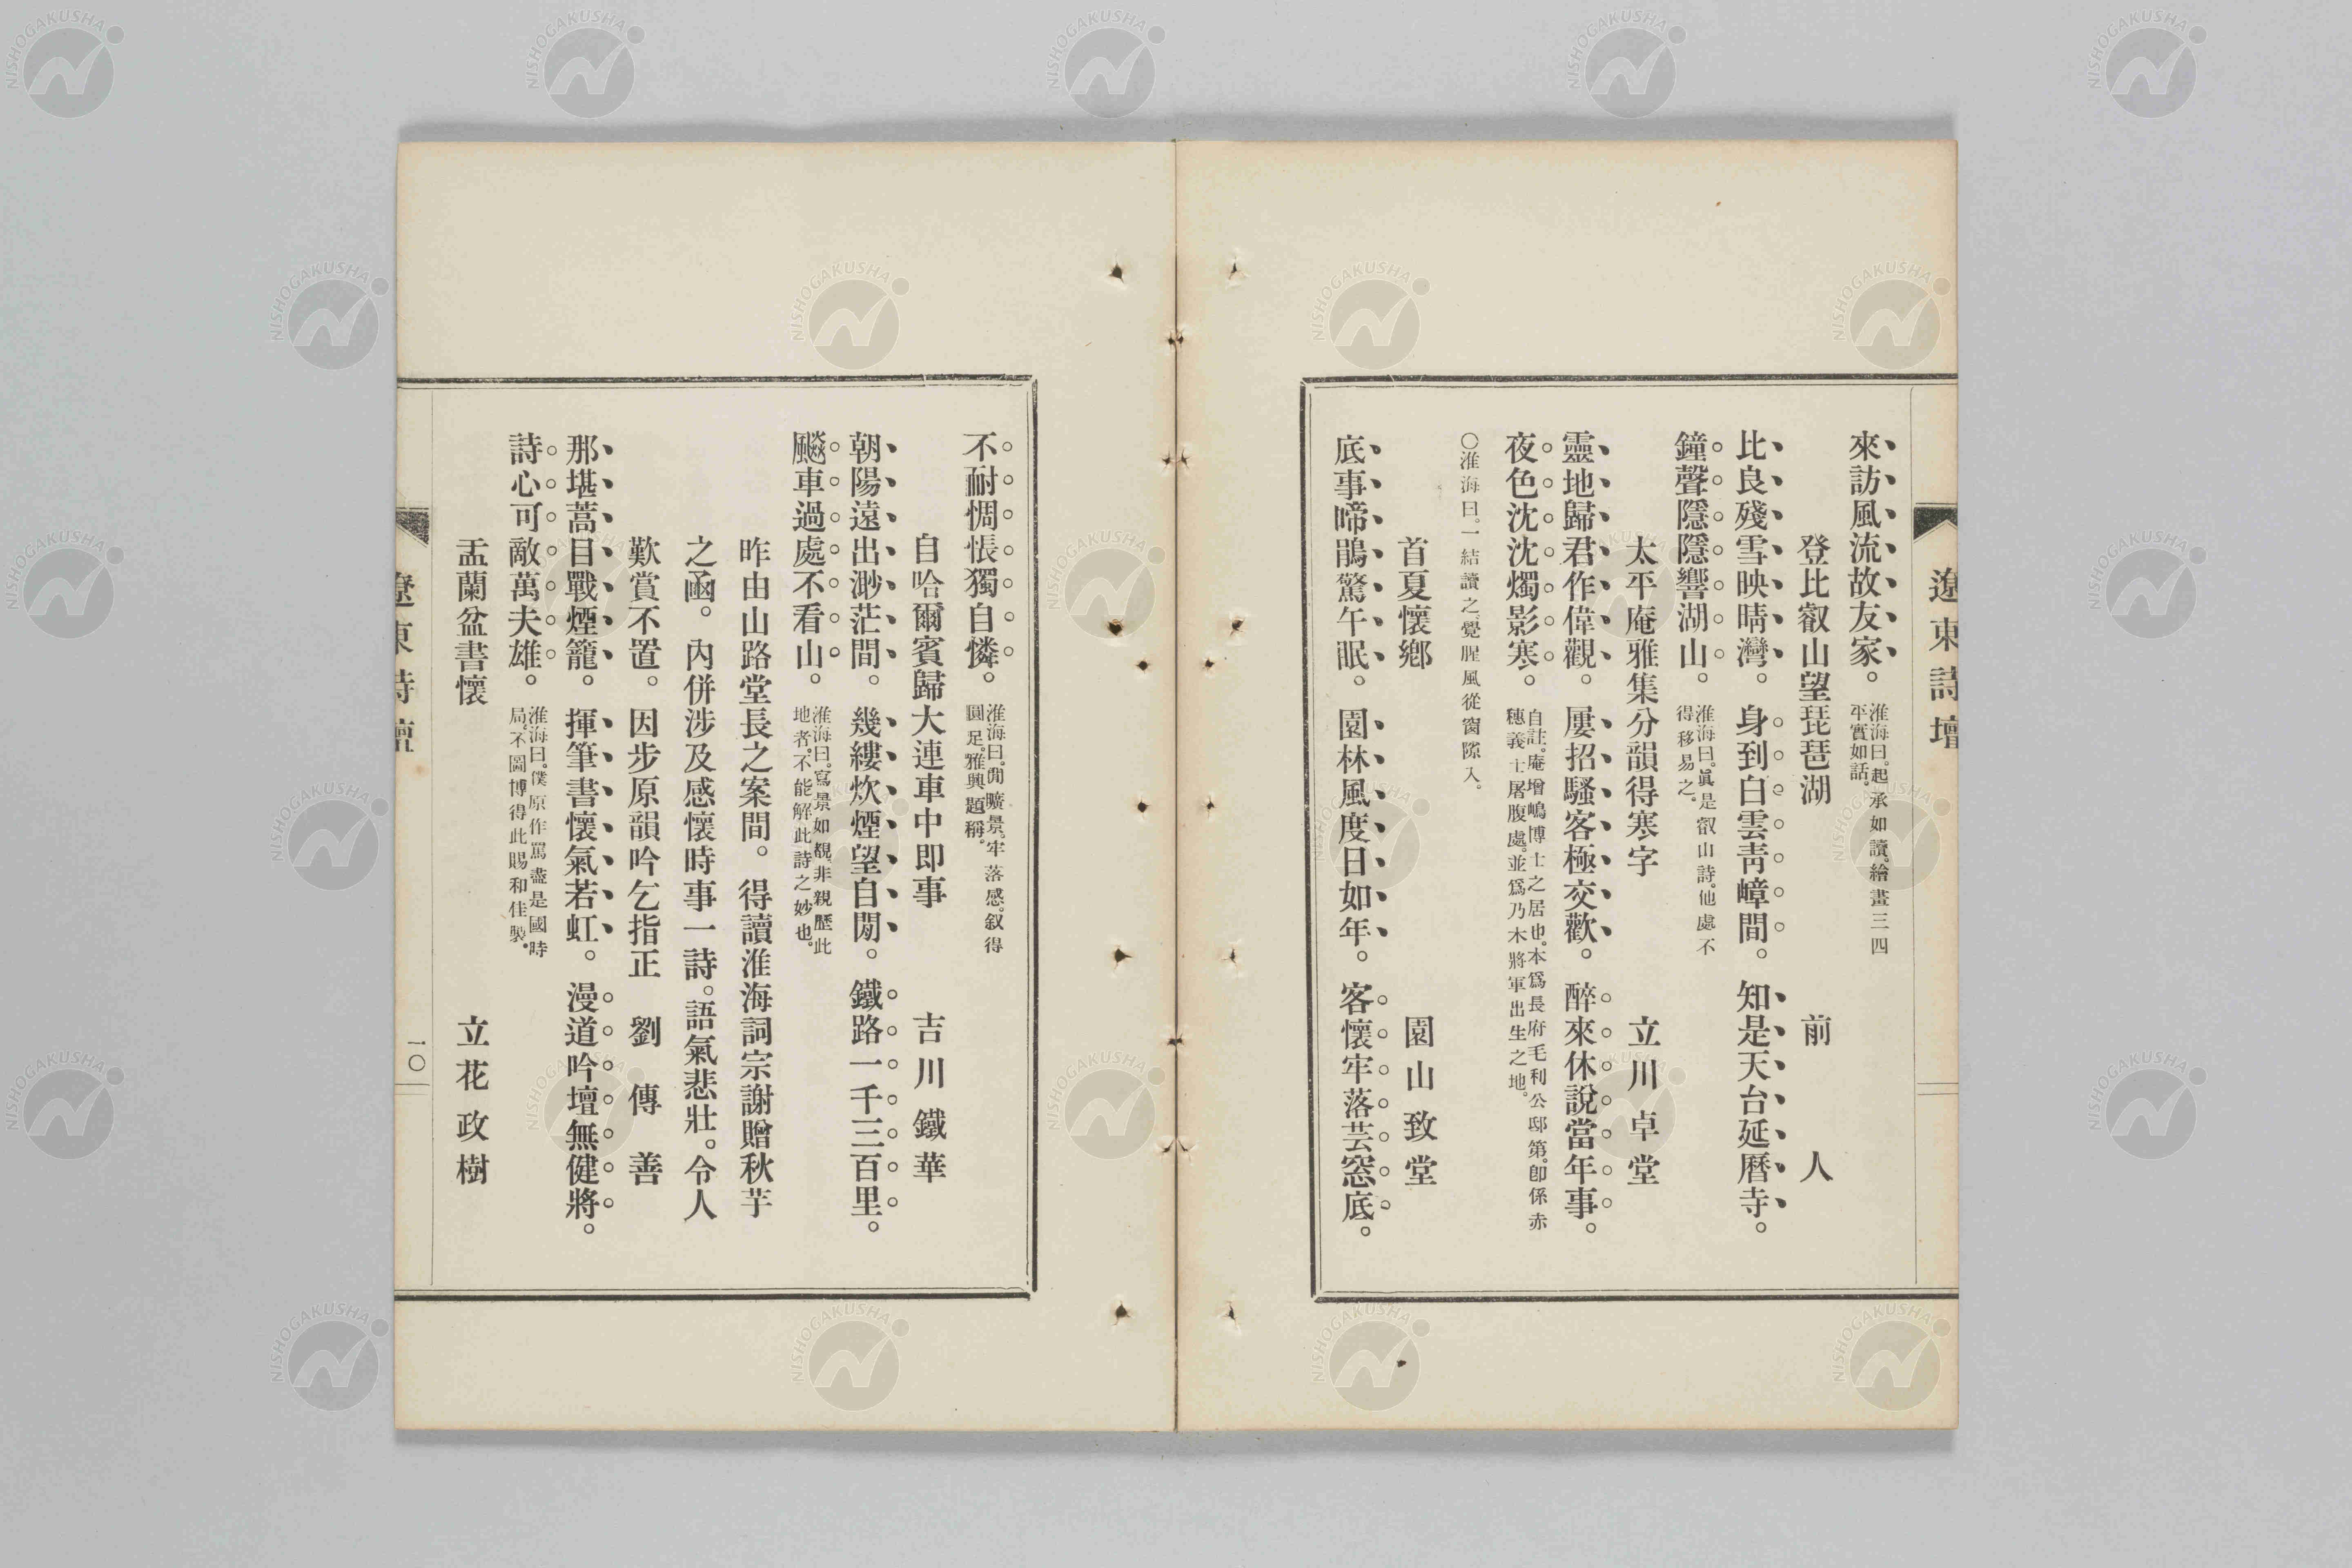 遼東詩壇
來訪風流故友家。淮海曰。起承如讀。繪畫三四
平實如話。
登比叡山望琵琶湖　前人
比良殘雪映晴灣。身到白雲靑嶂間。知是天台延曆寺。
鐘聲隱隱響湖山。淮海曰。眞是叡山詩。他處不
得移易之。
太平庵雅集分韻得寒字　立川卓堂
靈地歸君作偉觀。屢招騷客極交歡。醉來休說當年事。
夜色沈沈燭影寒。自註。庵增嶋博士之居也。本爲長府毛利公邸第。卽係赤
穗義士屠腹處。並爲乃木將軍出生之地。
○淮海曰。一結讀之。覺腥風從窗隙入。
首夏懷鄕　園山致堂
底事啼鵑驚午眠。園林風度日如年。客懷牢落芸窓底。
不耐惆悵獨自憐。淮海曰。閒曠景。牢落感。叙得
圓足。雅興題稱。
自哈爾賓歸大連車中即事　吉川鐵華
朝陽遠出渺茫間。幾縷炊煙望自閒。鐵路一千三百里。
飈車過處不看山。淮海曰。寫景如覩。非親歷此
地者。不能解此詩之妙也。
昨由山路堂長之案間。得讀淮海詞宗謝贈秋芋
之凾。內併涉及感懷時事一詩。語氣悲壯。令人
歎賞不置。因步原韻吟乞指正　劉傳善
那堪蒿目戰煙籠。揮筆書懷氣若虹。漫道吟壇無健將。
詩心可敵萬夫雄。淮海曰。僕原作罵盡是國時
局。不圖博得此賜和佳製。
盂蘭盆書懷　立花政樹
遼東詩壇
一〇
NISHOGAKUSHA